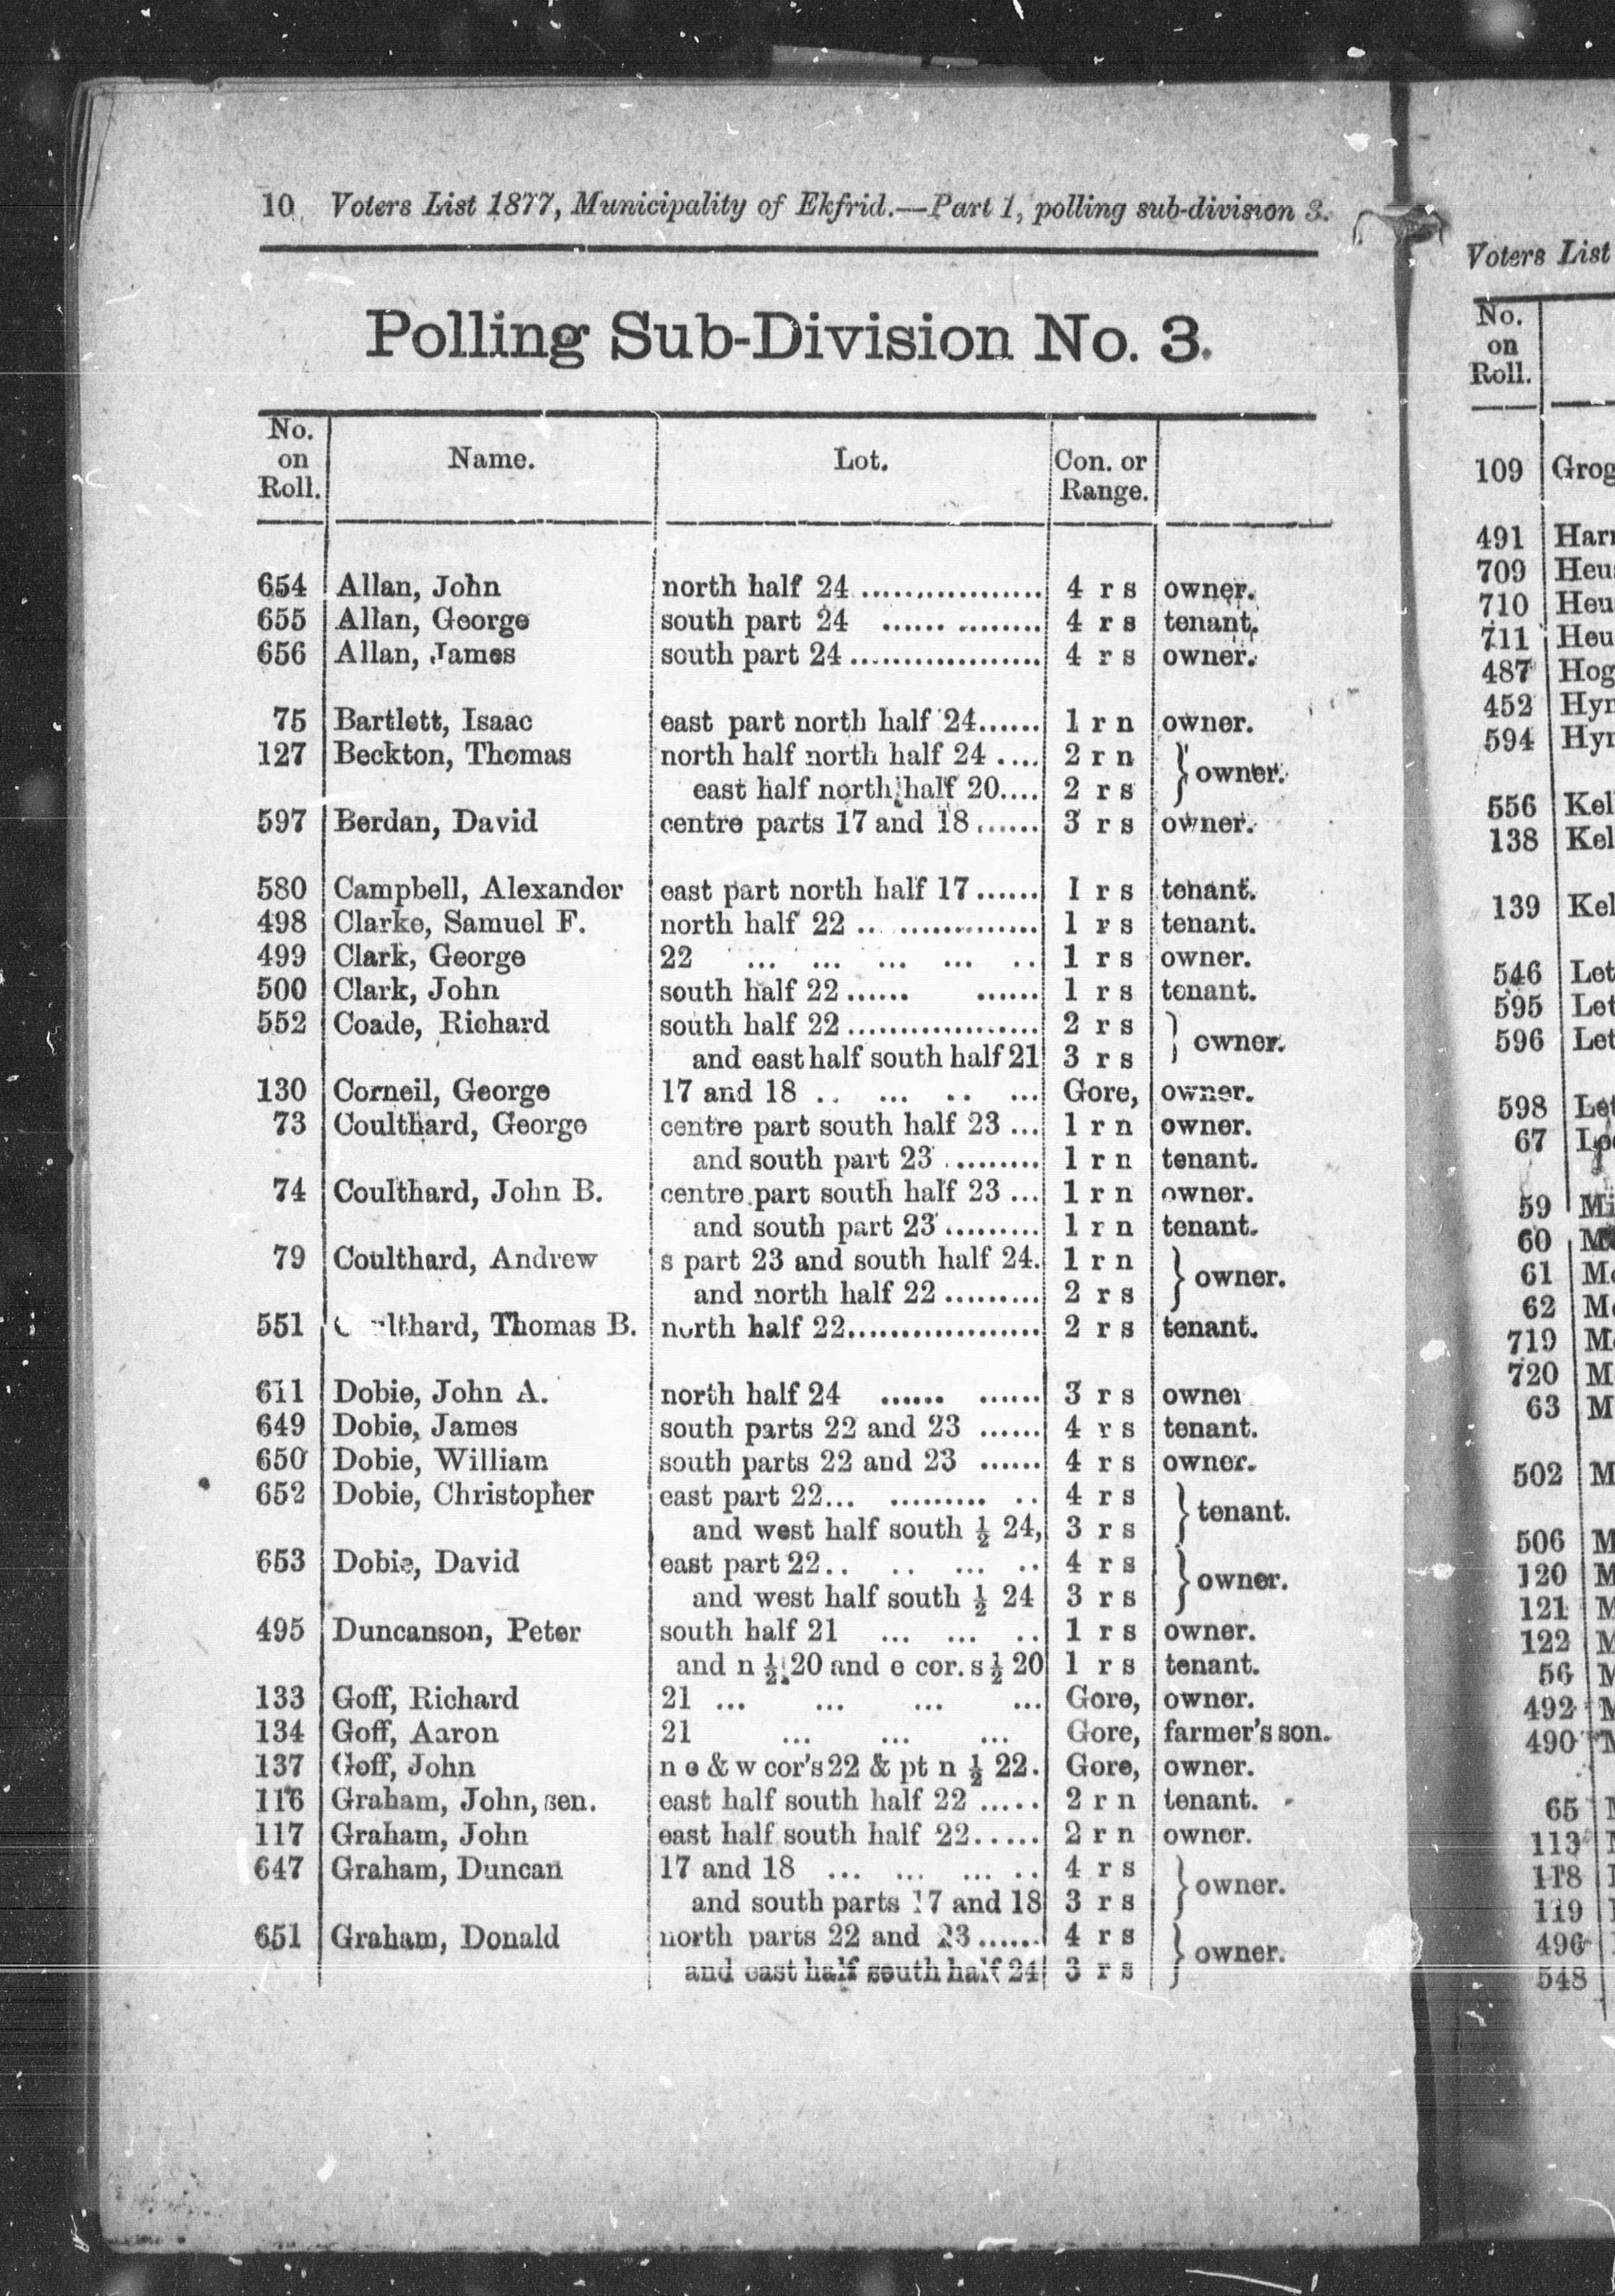 10 Voters List 1877, Municipality of Ekfrid.—Part 1, polling sub-division 3.
Polling Sub-Division No. 3.
No. on Roll. Name. Lot. Con. or Range.
654 Allan, John north half 24 .................. 4 r s owner.
655 Allan, George south part 24 ...... ........ 4 r s tenant.
656 Allan, James south part 24 ................... 4 r s owner.
75 Bartlett, Isaac east part north half 24...... 1 r n owner.
127 Beckton, Thomas north half north half 24 .... 2 r n } owner.
east half north half 20.... 2 r s
597 Berdan, David centre parts 17 and 18 ...... 3 r s owner.
580 Campbell, Alexander east part north half 17 ...... 1 r s tenant.
498 Clarke, Samuel F. north half 22 .. .............. 1 r s tenant.
499 Clark, George 22 ... ... ... ... .. 1 r s owner.
500 Clark, John south half 22 ...... ...... 1 r s tenant.
552 Coade, Richard south half 22 ................... 2 r s } owner.
and east half south half 21 3 r s
130 Corneil, George 17 and 18 .. ... .. ... Gore, owner.
73 Coulthard, George centre part south half 23 ... 1 r n owner.
and south part 23 .......... 1 r n tenant.
74 Coulthard, John B. centre part south half 23 ... 1 r n owner.
and south part 23 ......... 1 r n tenant.
79 Coulthard, Andrew s part 23 and south half 24. 1 r n } owner.
and north half 22 ......... 2 r s
551 Coulthard, Thomas B. north half 22................... 2 r s tenant.
611 Dobie, John A. north half 24 ...... ...... 3 r s owner
649 Dobie, James south parts 22 and 23 ...... 4 r s tenant.
650 Dobie, William south parts 22 and 23 ...... 4 r s owner.
652 Dobie, Christopher east part 22... ......... .. 4 r s } tenant.
and west half south ½ 24, 3 r s
653 Dobie, David east part 22.. .. ... .. 4 r s } owner.
and west half south ½ 24 3 r s
495 Duncanson, Peter south half 21 ... ... .. 1 r s owner.
and n ½ 20 and e cor. s ½ 20 1 r s tenant.
133 Goff, Richard 21 ... ... ... ... Gore, owner.
134 Goff, Aaron 21 ... ... ... Gore, farmer's son.
137 Goff, John n e & w cor's 22 & pt n ½ 22. Gore, owner.
116 Graham, John, sen. east half south half 22 ..... 2 r n tenant.
117 Graham, John east half south half 22...... 2 r n owner.
647 Graham, Duncan 17 and 18 ... ... ... .. 4 r s } owner.
and south parts 17 and 18 3 r s
651 Graham, Donald north parts 22 and 23...... 4 r s } owner.
and east half south half 24 3 r s
Voters List
No. on Roll.
109 Grog
491 Harr
709 Heu
710 Heu
711 Heu
487 Hog
452 Hyn
594 Hyn
556 Kel
138 Kel
139 Kel
546 Let
595 Let
596 Let
598 Let
67
59 Mi
60 M
61 Mc
62 Mc
719 Mc
720 M
63 M
502 M
506 M
120 M
121 M
122 M
56 M
492 M
490 M
65
113
118
119
496
548